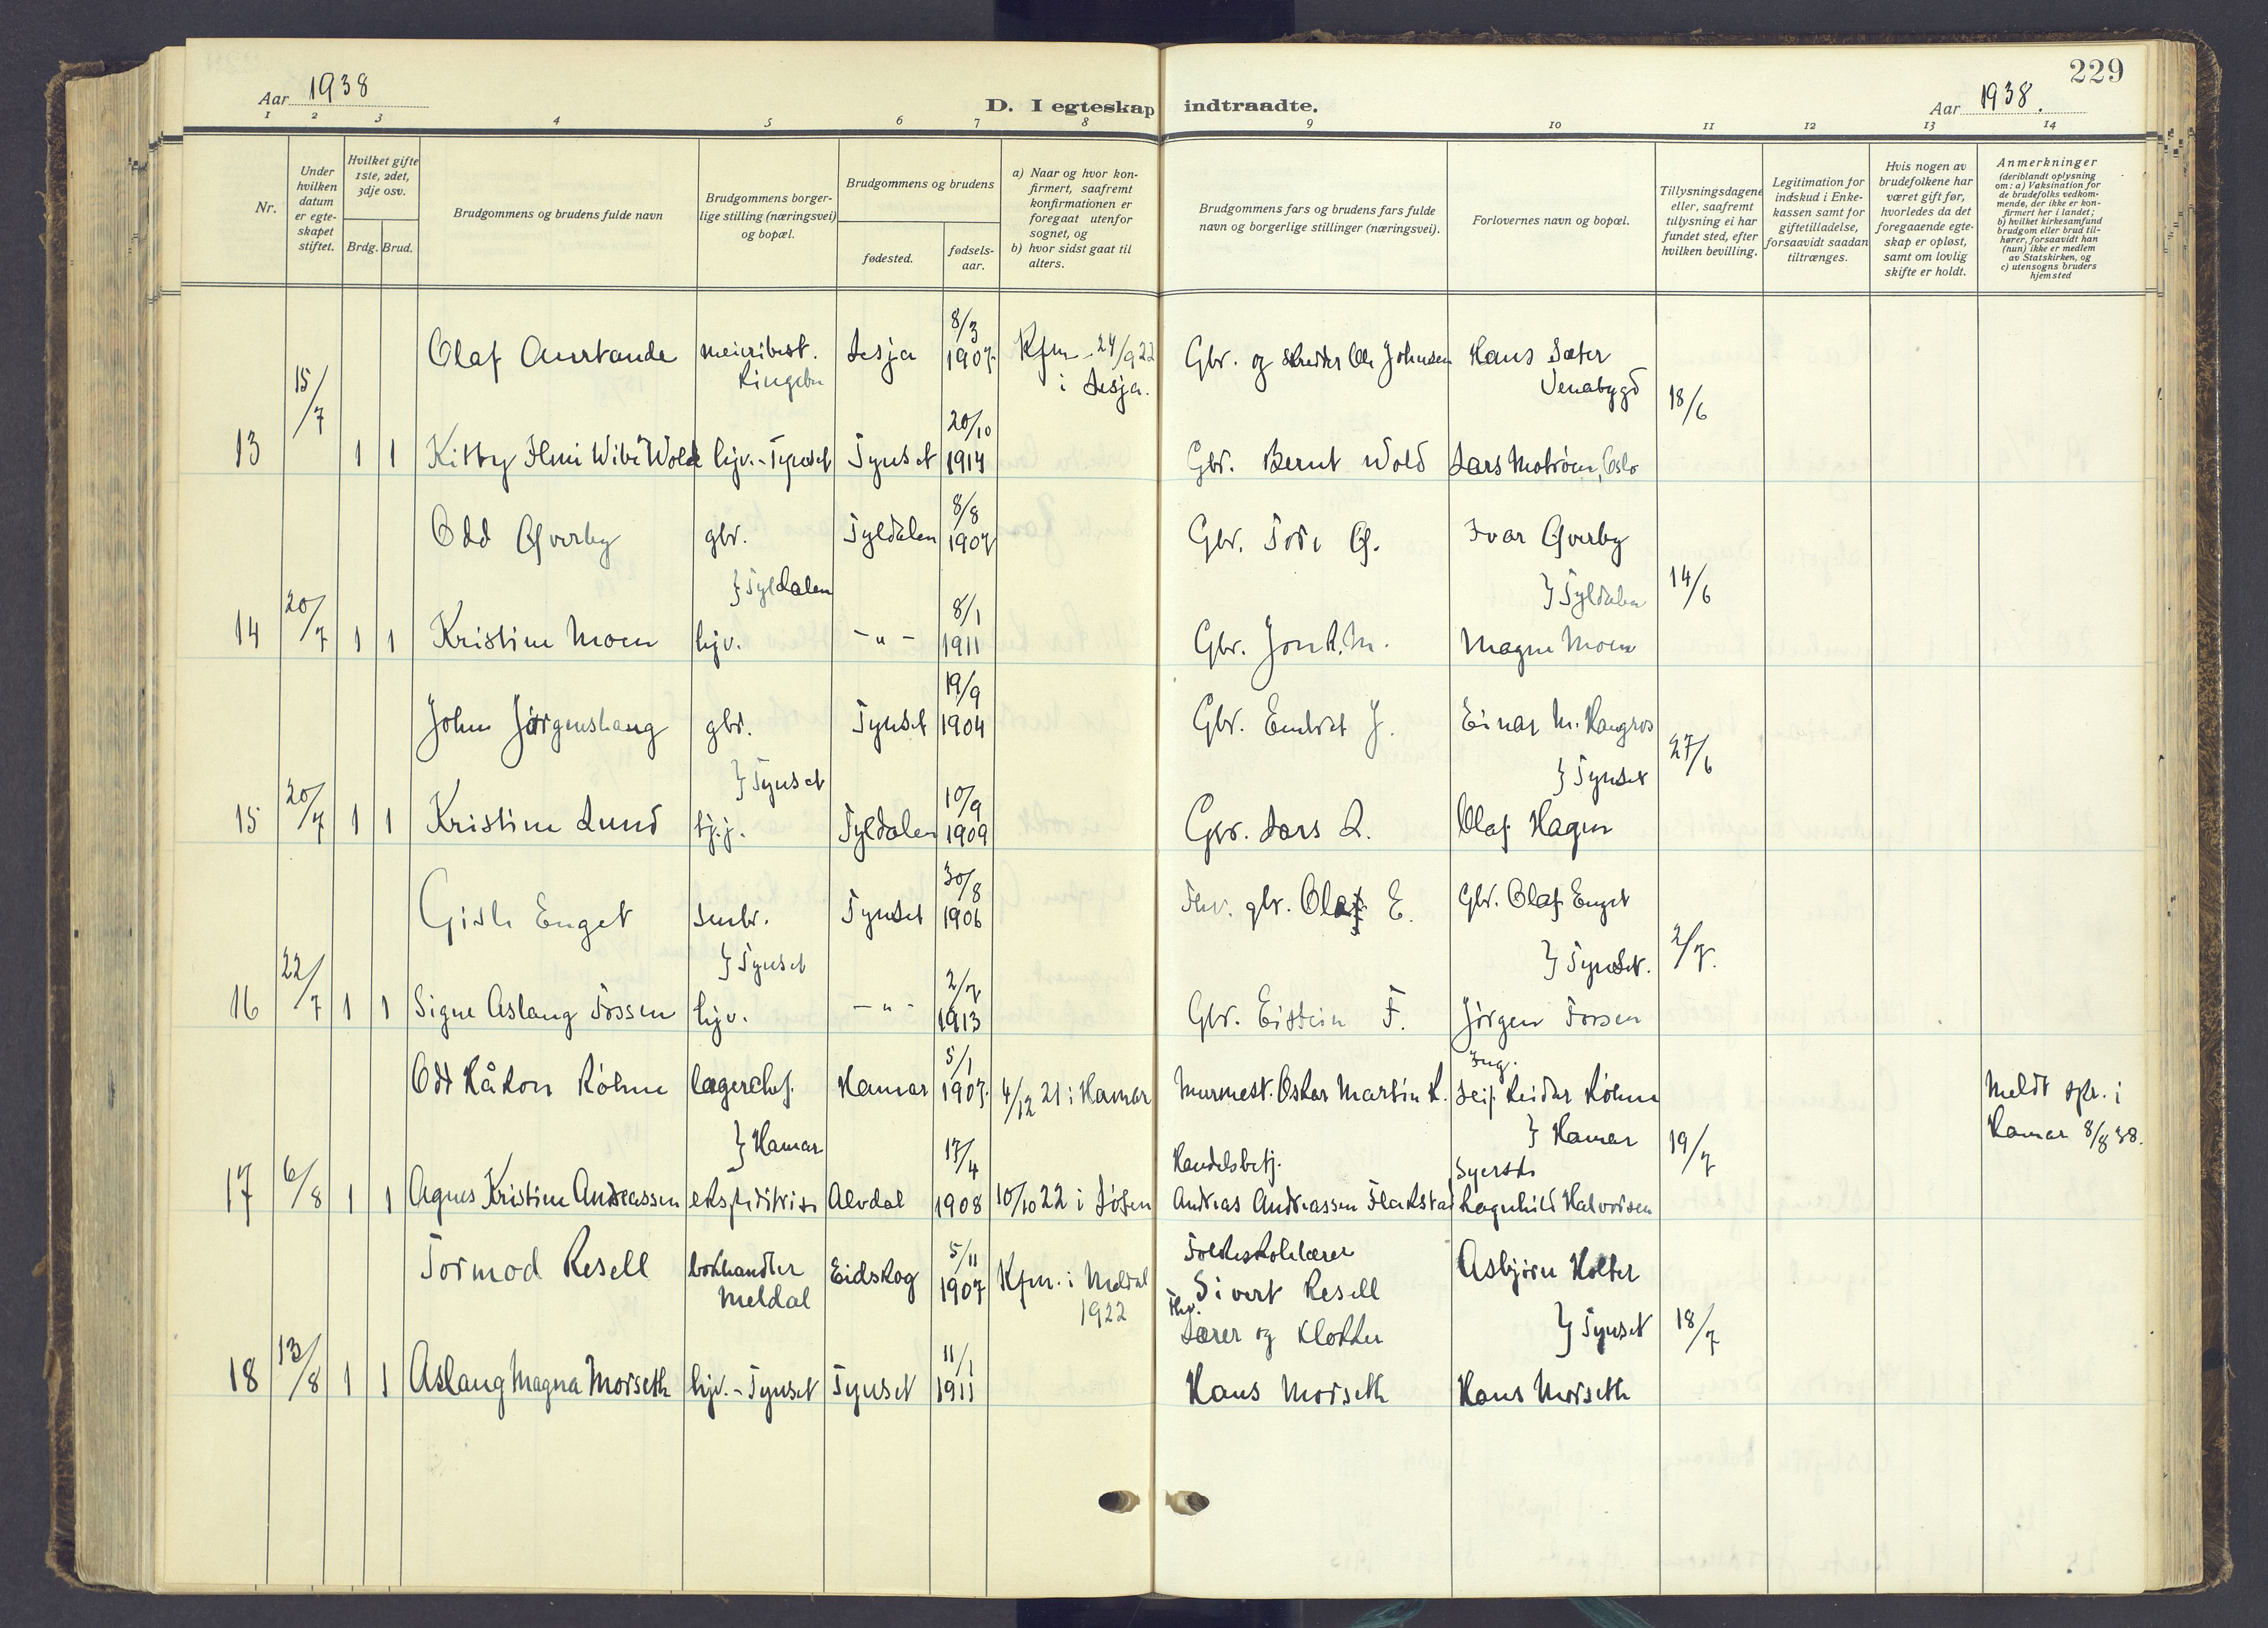 229
Aar 1938
D. I egteskap indtraadte.
Aar 1938.
1 2 3 4 5 6 7 8 9 10 11 12 13 14
Nr.
Under hvilken datum er egteskapet stiftet.
Hvilket gifte 1ste, 2det, 3dje osv.
Brdg. Brud.
Brudgommens og brudens fulde navn
Brudgommens borgerlige stilling (næringsvei) og bopæl.
Brudgommens og brudens
fødested.
fødselsaar.
a) Naar og hvor konfirmert, saafremt konfirmationen er foregaat utenfor sognet, og
b) hvor sidst gaat til alters.
Brudgommens fars og brudens fars fulde navn og borgerlige stillinger (næringsvei).
Forlovernes navn og bopæl.
Tillysningsdagene eller, saafremt tillysning ei har fundet sted, efter hvilken bevilling.
Legitimation for indskud i Enkekassen samt for giftetilladelse, forsaavidt saadan tiltrænges.
Hvis nogen av brudefolkene har været gift før, hvorledes da det foregaaende egteskap er opløst, samt om lovlig skifte er holdt.
Anmerkninger (deriblandt oplysning om: a) Vaksination for de brudefolks vedkommende, der ikke er konfirmert her i landet; b) hvilket kirkesamfund brudgom eller brud tilhører, forsaavidt han (hun) ikke er medlem av Statskirken, og c) utensogns bruders hjemsted
Olaf meieribest. Lesja 8/3 1907 Kfm. 24/9 22 Gbr. og Ole Johnsen Hans Sæter
Ringebu i Lesja. Venabygd
15/7 18/6
13 1 1 Kitty Wold hjv. - Tynset Tynset 20/10 1914 Gbr. Bernt Wold Lars Motrøen, Oslo
Odd Øverby gbr. Tyldalen 8/8 1907 Gbr. Tore Ø. Ivar Øverby
} Tyldalen } Tyldalen 14/6
14 20/7 1 1 Kristine Moen hjv. - " - 8/1 1911 Gbr. Jon R. M. Magne Moen
John Jørgenshaug gbr. Tynset 19/9 1904 Gbr. Endret J. Einar M. Haugros
} Tynset } Tynset 27/6
15 20/7 1 1 Kristine Lund hj.j. Tyldalen 10/9 1909 Gbr. Lars L. Olaf Hagen
Gisle Enget smbr. Tynset 30/8 1906 Fhv. gbr. Olaf E. Gbr. Olaf Enget
} Tynset } Tynset. 2/7.
16 22/7 1 1 Signe Aslaug Fossen hjv. - " - 2/7 1913 Gbr. Eistein F. Jørgen Fossen
Odd Håkon Röhme lagerchef. Hamar 5/1 1907. 4/12 21 i Hamar Murmest. Oskar Martin R. Ing. Leif Reidar Röhme Meldt spr. i
} Hamar } Hamar 19/7 Hamar 8/8 38.
Handelsbetj. Syerske
17 6/8 1 1 Agnes Kristine Andreassen ekspeditrise Alvdal 17/4 1908 10/10 22 i Løten Andreas Andreassen Flakstad Ragnhild Halvorsen
Tormod Resell bokhandler Eidskog 5/11 1907 Kfm. i Meldal Folkeskolelærer Asbjørn Holter
Meldal 1922 Sivert Resell
Fhv. Lærer og Klokker } Tynset 18/7
18 13/8 1 1 Aslaug Magna Morseth hjv. - Tynset Tynset 11/1 1911 Hans Morseth Hans Morseth